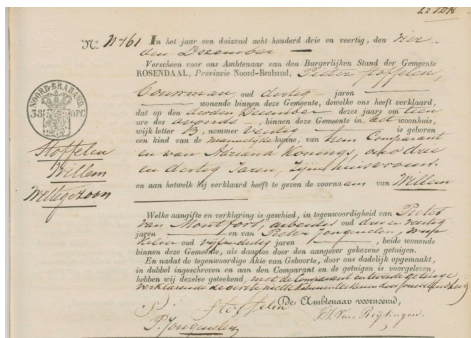 No. 161 In het jaar een duizend acht honderd drie en veertig, den vier
den December
Verscheen voor ons Ambtenaar van den Burgerlijken Stand der Gemeente
ROSENDAAL, Provincie Noord-Braband, Pieter Stoffelen,
Bouwman oud dertig jaren
wonende binnen deze Gemeente, dewelke ons heeft verklaard,
dat op den derden December dezes jaars om tien
ure des avonds binnen deze Gemeente in het woonhuis,
wijk letter B, nommer veertig is geboren
een kind van de mannelijke kunne, van hem Comparant
en van Adriana Konings, oud drie
en dertig Jaren, zijne huisvrouw
en aan hetwelk hij verklaard heeft te geven de voornaam van Willem
NOORD-BRABAND
Stoffelen
Willem
Wettige zoon
Welke aangifte en verklaring is geschied, in tegenwoordigheid van Pieter
van Montfort, arbeider oud drie en veertig
jaren en van Pieter Jongenelen,
oud vijf en dertig jaren, beide wonende
binnen deze Gemeente, als daartoe door den aangever gekozene getuigen.
En nadat de tegenwoordige Akte van Geboorte, door ons dadelijk opgemaakt,
in dubbel ingeschreven en aan den Comparant en de getuigen is voorgelezen,
hebben wij dezelve geteekend, met de Comparant en tweede getuige,
verklarende de eerste niet te kunnen
De Ambtenaar voornoemd,
Stoffelen
P. Jongenelen